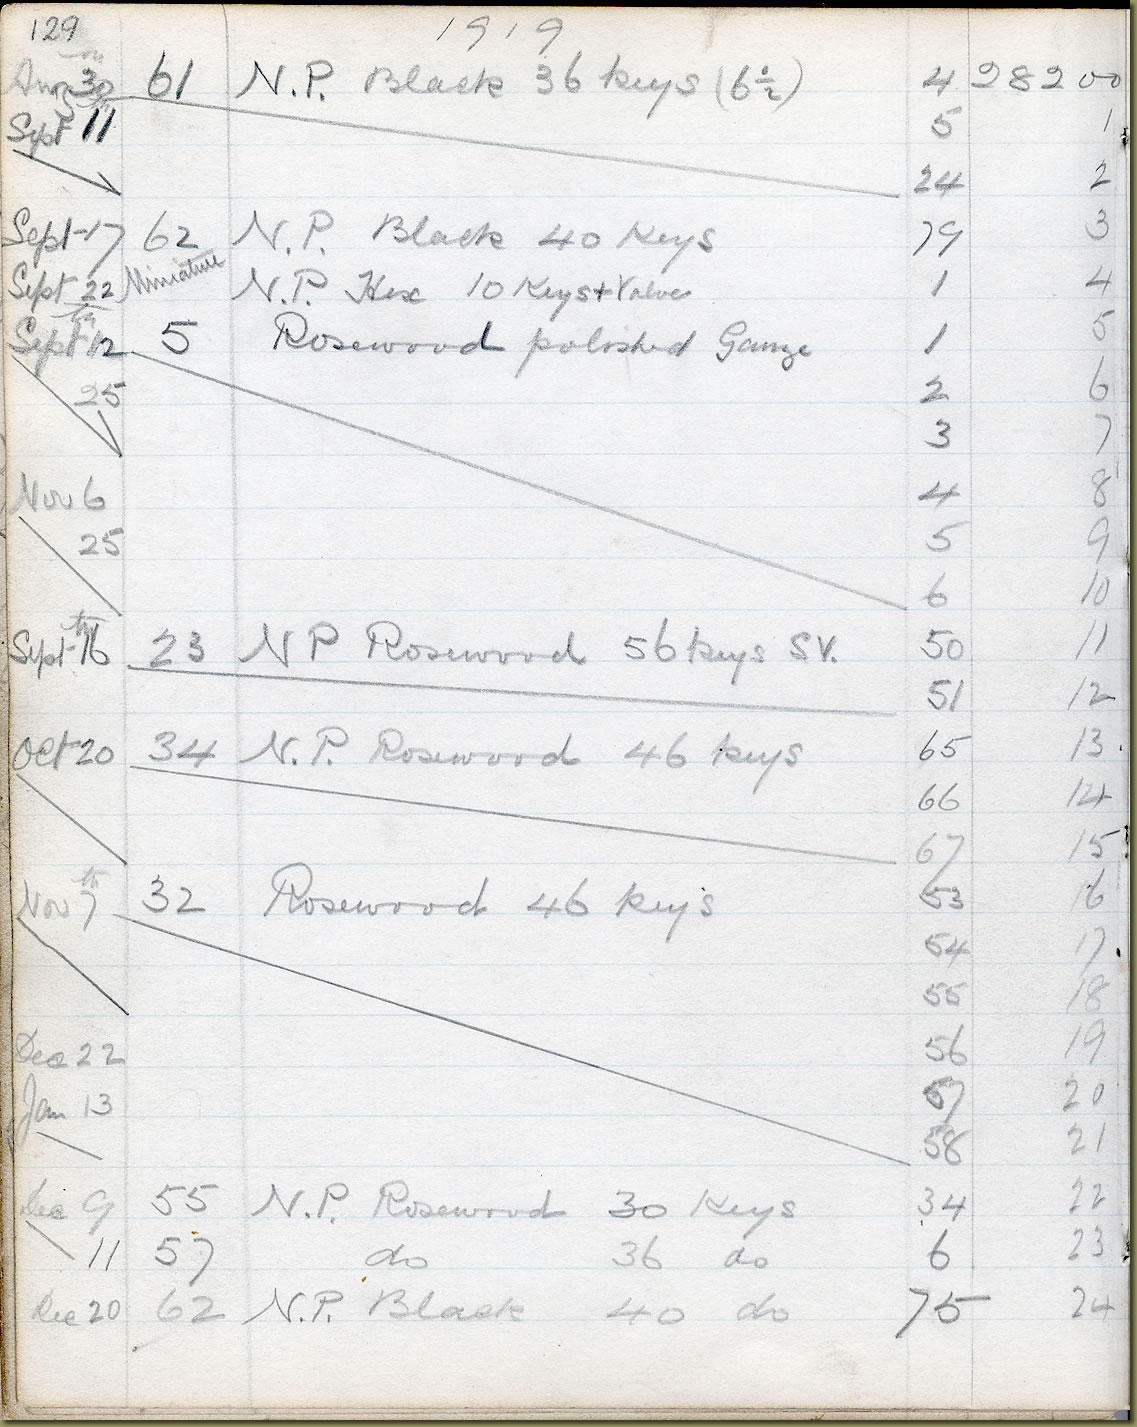 129 1919
Aug 30th 61 N.P. Black 36 keys (6½) 4 28200
Sept 11th 5 1
24 2
Sept 17 62 N.P. Black 40 Keys 79 3
Sept 22 Miniature N.P. Hex 10 Keys + Valve 1 4
Sept 12th 5 Rosewood polished Gauze 1 5
25 2 6
3 7
Nov 6 4 8
25 5 9
6 10
Sept 16th 23 N P Rosewood 56 keys S.V. 50 11
51 12
Oct 20 34 N.P. Rosewood 46 keys 65 13
66 14
67 15
Nov 7th 32 Rosewood 46 keys 53 16
54 17
55 18
Dec 22 56 19
Jan 13 57 20
58 21
Dec 9 55 N.P. Rosewood 30 Keys 34 22
11 57 do 36 do 6 23
Dec 20 62 N.P. Black 40 do 75 24